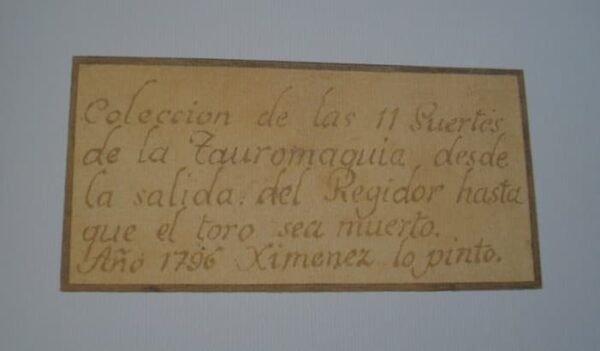 Coleccion de las 11 Suertes
de la Tauromaquia, desde
la salida del Regidor hasta
que el toro sea muerto.
Año 1796 Ximenez lo pinto.